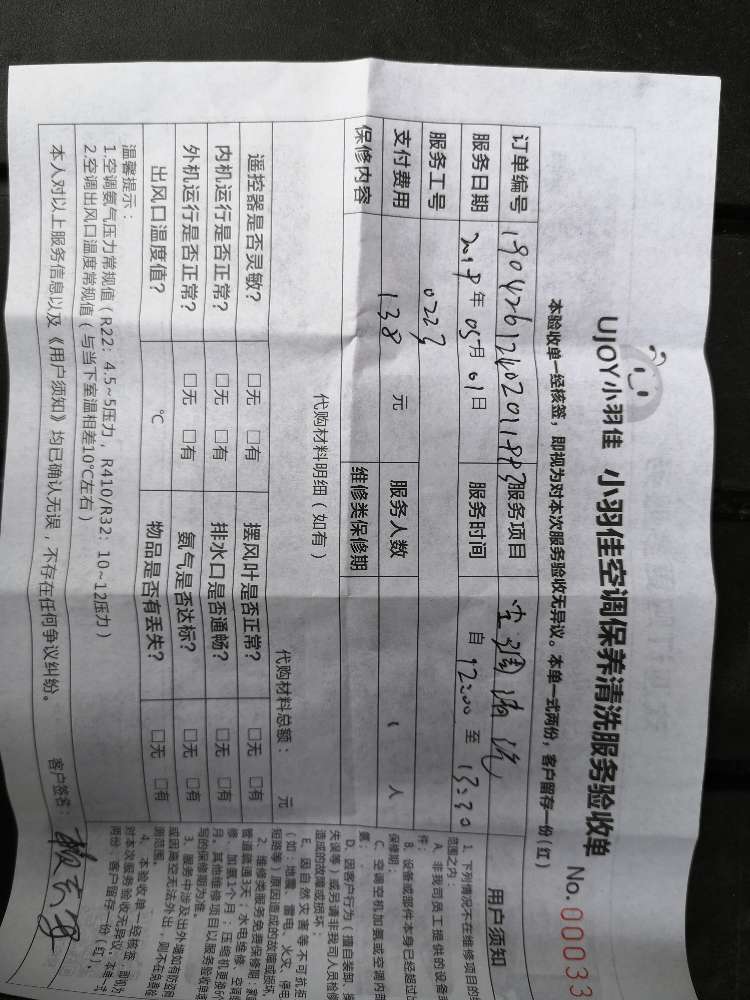 UJOY小羽佳 小羽佳空调保养清洗服务验收单
No.00033
本验收单一经核签，即视为对本次服务验收无异议。本单一式两份，客户留存一份(红)
订单编号 服务项目 空调清洗
服务日期 2019年05月01日 服务时间 自 12:00 至 13:30
服务工号 0223
支付费用 138 元 服务人数 1 人
保修内容 维修类保修期
代购材料明细（如有）
代购材料总额： 元
遥控器是否灵敏？ □无 □有 摆风叶是否正常？ □无 □有
内机运行是否正常？ □无 □有 排水口是否通畅？ □无 □有
外机运行是否正常？ □无 □有 氨气是否达标？ □无 □有
出风口温度值？ ℃ 物品是否有丢失？ □无 □有
温馨提示：
1.空调氨气压力常规值（R22：4.5~5压力，R410/R32：10~12压力）
2.空调出风口温度常规值（与当下室温相差10℃左右）
本人对以上服务信息以及《用户须知》均已确认无误，不存在任何争议纠纷。 客户签名：
用户须知
1、下列情况不在维修项目的
范围之内：
A、非我司员工提供的设备
件；
B、设备或部件本身已经超过
保修期；
C、空调空机加氨或空调内部
氨；
D、因客户行为（擅自装卸、
失误等）或另请非我司人员检修
造成的故障或损坏；
E、因自然灾害等不可抗拒
（如：地震、雷电、火灾、停电
短路等）原因造成的故障或损坏。
2、维修类服务免费保修期：
管道疏通3天；水电维修、空调
修、加氨1个月；压缩机更换6个
月。其他维修项目以服务验收单
写的保修期为准。
3、服务中涉及出外墙如有防盗网
或因高空无法外出，则不在免费
测范围。
4、本验收单一经核签，即视为
对本次服务验收无异议。本单一式
两份，客户留存一份（红）。